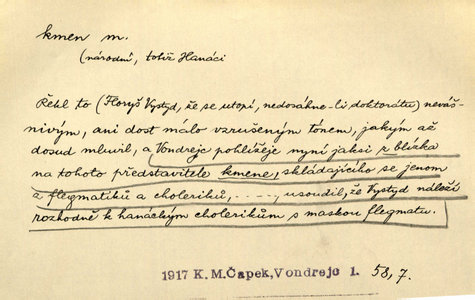 kmen m.
(národní, totiž Hanáci
Řekl to (Floryš Vystyd, že se utopí, nedosáhne-li doktorátu) neváš-
nivým, ani dost málo vzrušeným tónem, jakým až
dosud mluvil, a Vondrejc pohlížeje nyní jaksi z blízka
na tohoto představitele kmene, skládajícího se jenom
z flegmatiků a choleriků, ....., usoudil, že Vystyd náleží
rozhodně k hanáckým cholerikům s maskou flegmatu.
1917 K.M.Čapek,Vondrejc 1. 58,7.